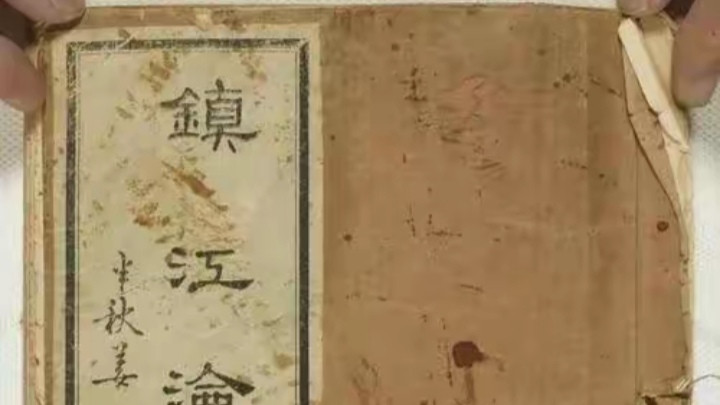 鎮江淪
半秋姜